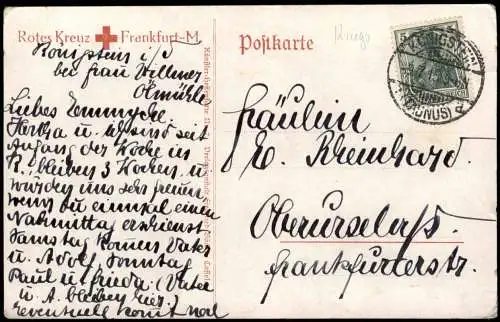 Rotes Kreuz Frankfurt-M.
Königstein i/T
bei Frau Villmer
Ölmühle
Liebes Emmyche,
Hertha u. sind seit
Anfang der Woche in
K., bleiben 3 Wochen u.
würden uns sehr freuen
wenn du einmal einen
Nahmittag erscheinst
Samstag komen Vater
u. Adolf, Sonntag
Paul u. Frieda. (Vater
u. A. bleiben hier.)
eventuell komt
Postkarte
Kriegs
5
KÖNIGSTEIN
(TAUNUS)
Fräulein
E. Rheinhard.
Oberursel
Frankfurterstr.